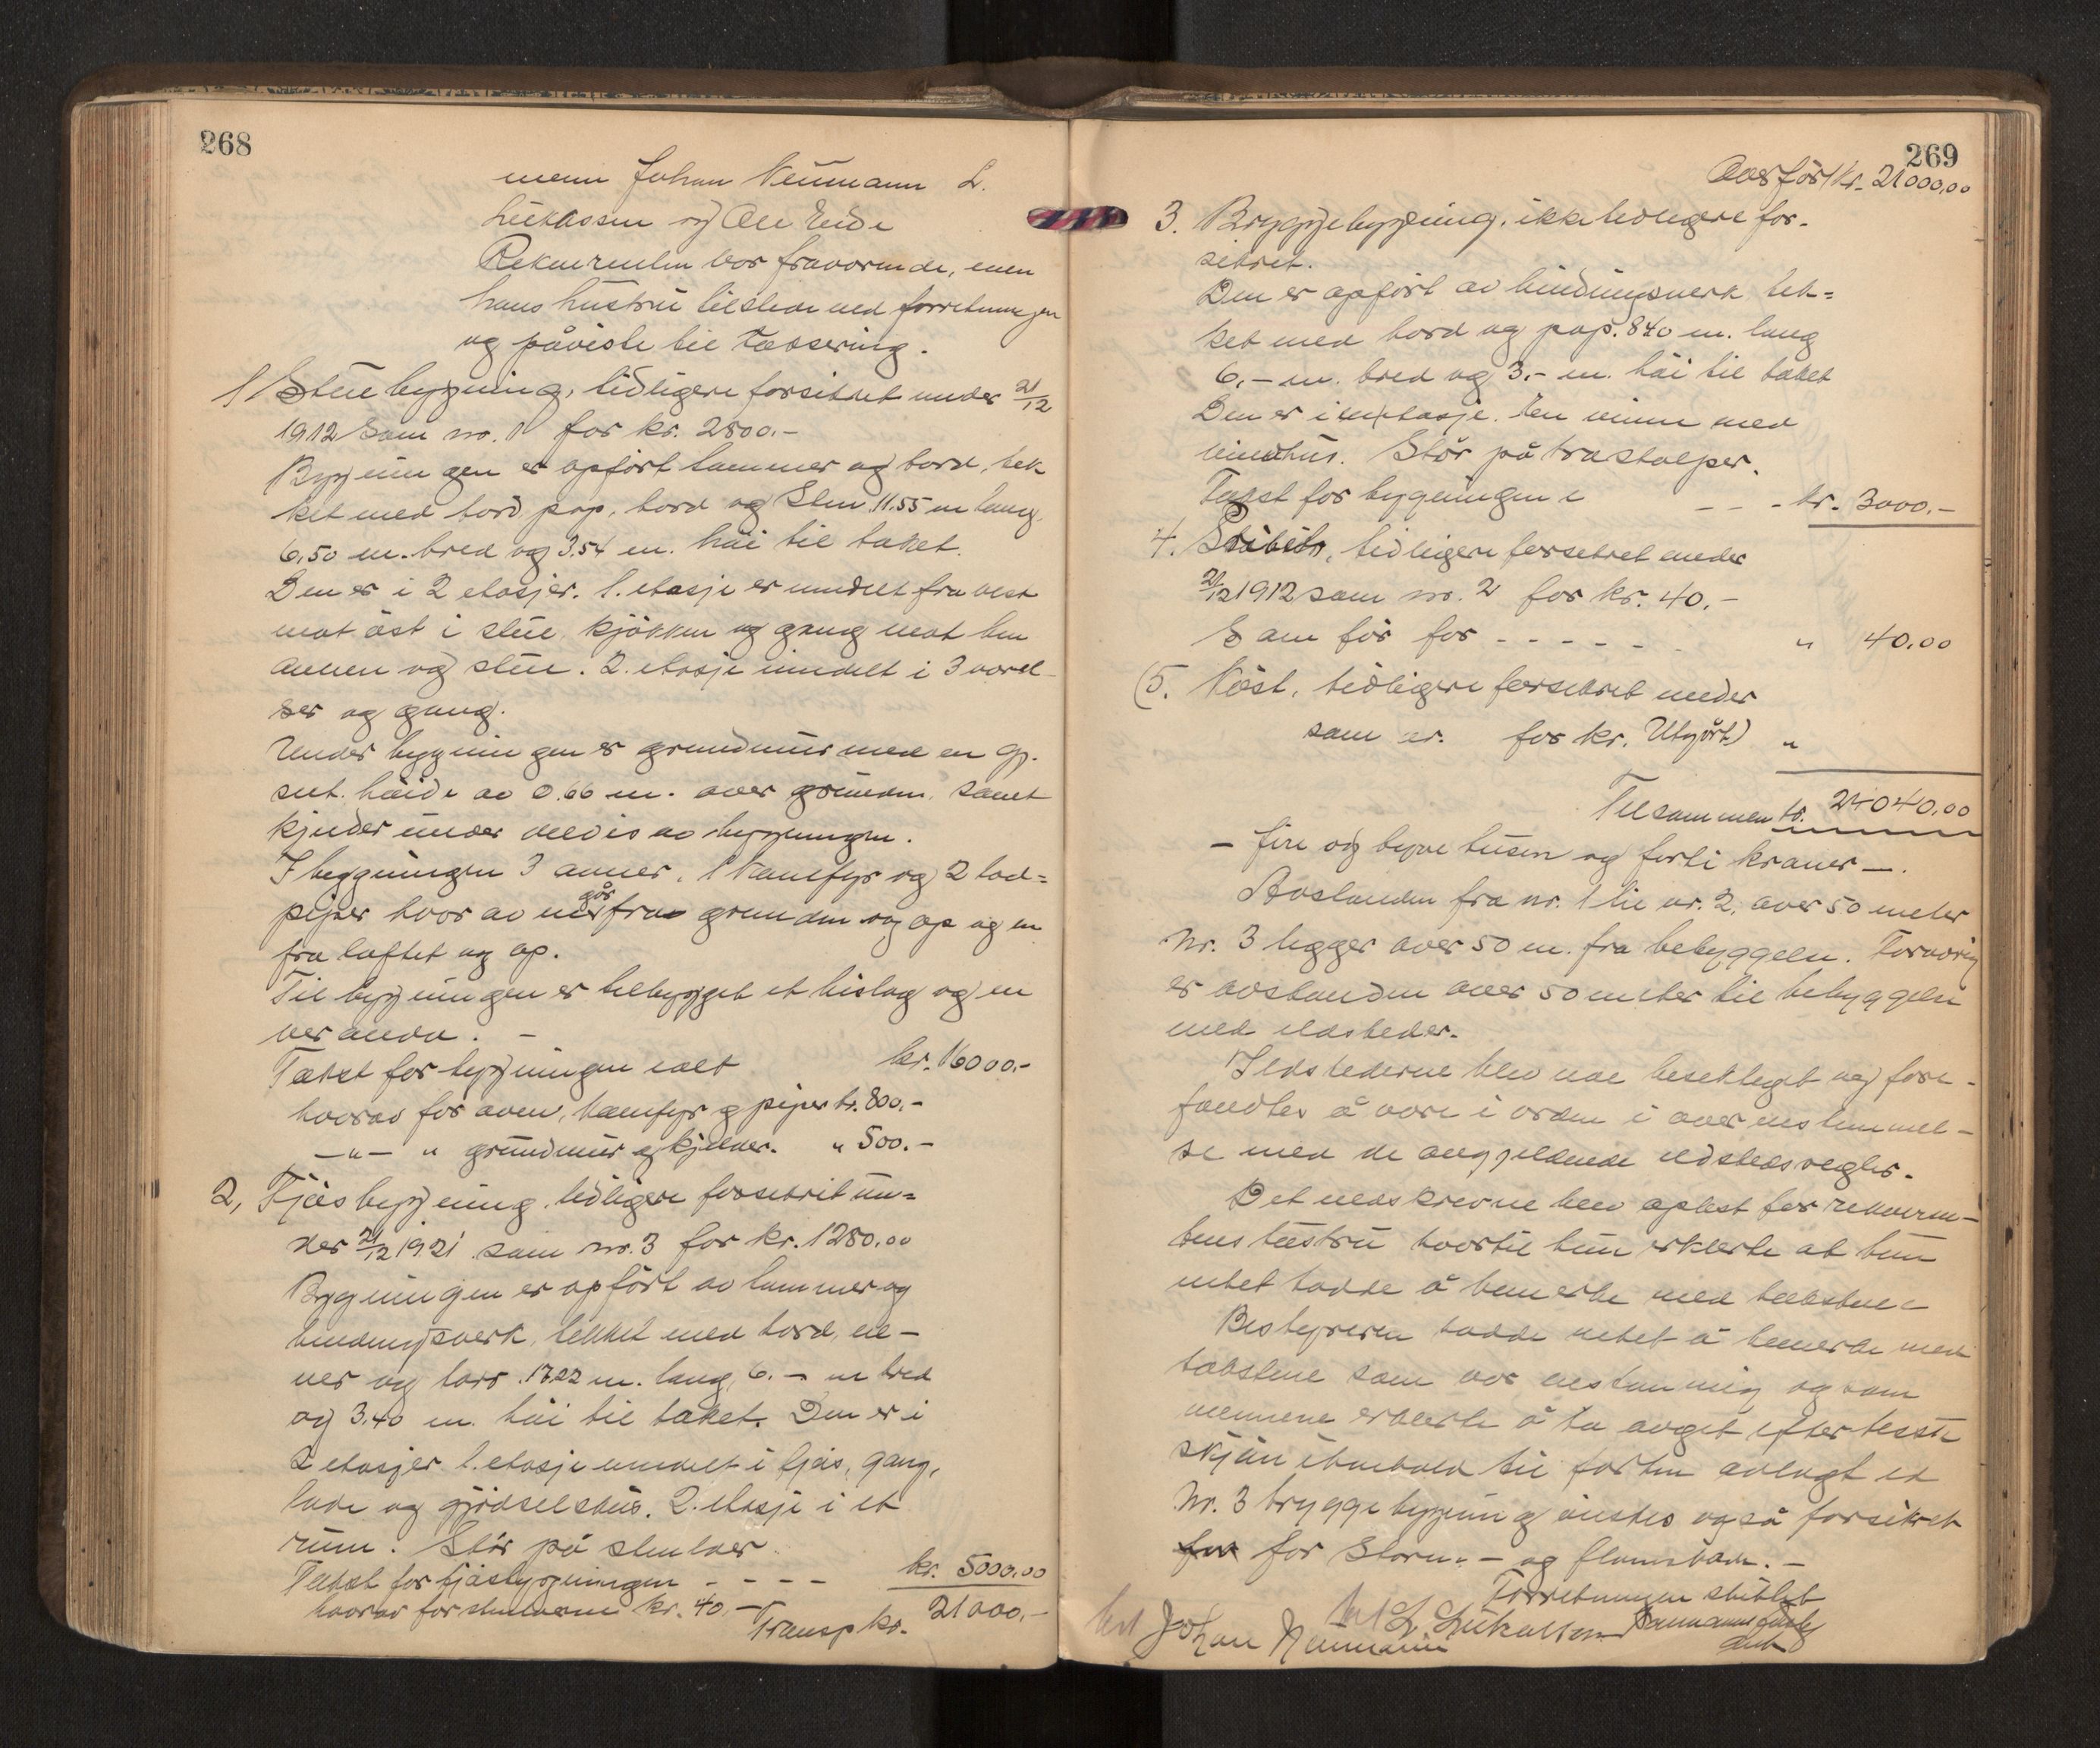 268
menn Johan Neumann L.
Lukassen og Ole Eide
Rekvirenten var fraværende, men
hans hustru tilstede ved forretningen
og påviste til taksering.
1/ Stuebygning, tidligere forsikret under 21/12
1912 som nr. 1 for kr. 2800.-
Bygningen er opført tømmer og bord, tek
ket med bord pap, bord og sten 11.55 m lang
6,50 m. bred og 3.54 m. høi til taket.
Den er i 2 etasjer. 1. etasje er inndelt fra vest
mot øst i stue, kjøkken og gang mot hin
annen og stue. 2. etasje inndelt i 3 værel
ser og gang.
Under bygningen er grundmur med en gj.
snt. høide av 0.66 m. over grunden, samt
kjeder under deldis av bygningen.
I bygningen 3 ovner, 1 kamfyr og 2 lod=
piper hvor av en går fra grunden og op og en
fra loftet og op.
Til bygningen er tilbygget et bislag og en
veranda. -
Takst for bygningen ialt kr. 16000.-
hvorav for ovner, kamfyr og piper kr. 800.-
-"- " grundmur og kjelder. " 500.-
2, Fjøsbygning, tidligere forsikret un=
der 21/12 1921 som nr. 3 for kr. 1280,00
Bygningen er opført av tømmer og
bindingsverk, tekket med bord, ne-
ver og torv. 17.22 m. lang, 6. - m bred
og 3,40 m. høi til taket. Den er i
2 etasjer 1. etasje inndelt i fjøs, gang,
lade og gjødselshus. 2. etasje i et
rum. Står på stenben.
Takst for fjøsbygningen - - - - kr. 5000,00
hvorav for stenbene kr. 40.-
Transp kr. 21000,-
269
Overført kr. 21000,00
3. Bryggebygning, ikke tidligere for-
sikret.
Den er opført av bindingsverk tek=
ket med bord og pap. 840 m. lang
6.- m. bred og 3.- m. høi til taket
Den er i en etasje. En inne med
vindhus. Står på træstolper.
Takst for bygningen - - - kr. 3000.-
4. tidligere forsikret under
21/12 1912 som nr. 2 for kr. 40.-
Som før for - - - - - " 40.00
(5. Nøst, tidligere forsikret under
som nr. for kr. Utgått) "
Tilsammen kr. 24040,00
- fire og tyve tusen og førti kroner -.
Avstanden fra nr. 1 til nr. 2, over 50 meter
Nr. 3 ligger over 50 m. fra bebyggelse. Forøvrig
er avstanden over 50 meter til bebyggelse
med ildsteder.
Ildstederne blev nøie besiktiget og fore-
fandtes å være i orden i overensstemmel-
se med de angjeldende ildstedsregler.
Det nedskrevne blev oplest for rekviren-
tens hustru hvortil hun erklærte at hun
intet hadde å bemerke med takstene
Bestyreren hadde intet å bemerke med
takstene som var enstemmig og som
mennene erklærte å ha avgit efter beste
skjøn i henhold til før den avlagt ed
Nr. 3 bryggebygning ønskes også forsikret
for for Storm- og flomskade. -
Forretningen sluttet
Johan Neumann L Lukassen